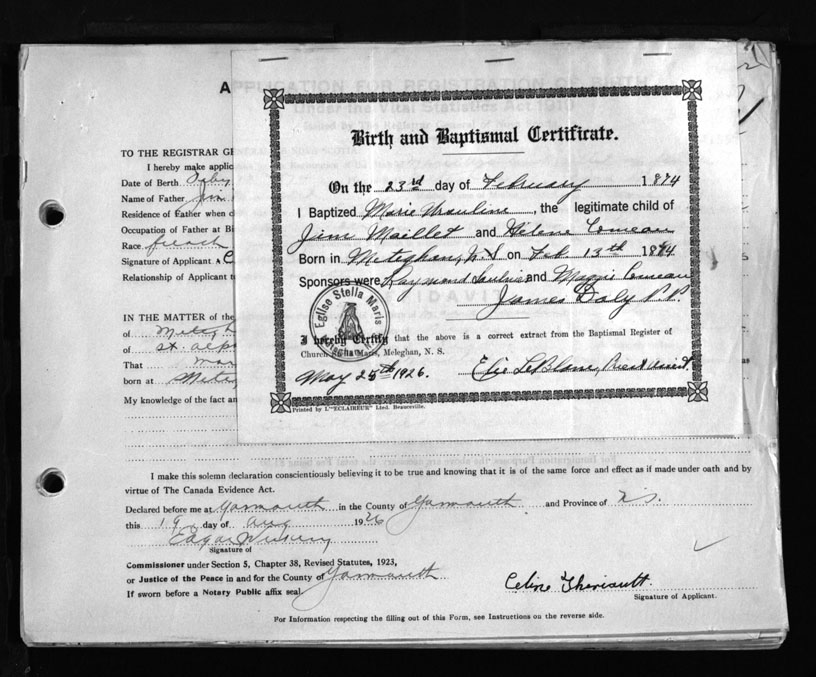 A
APPLICATION FOR REGISTRATION OF BIRTH
TO THE REGISTRAR GE
I hereby make applic
Date of Birth
Name of Father Jim
Residence of Father when c
Occupation of Father at Bi
Race french
Signature of Applicant C
Relationship of Applicant t
IN THE MATTER of the
of Metegh
of St Alph
That Mar
born at Meteg
My knowledge of the fact an
Birth and Baptismal Certificate.
On the 23rd day of February 1894
I Baptized Marie Ursuline, the legitimate child of
Jim Maillet and Hélène Comeau
Born in Meteghan, N.S on Feb. 13th 1894
Sponsors were Raymond Saulnier and Maggie Comeau
James Daly P.P.
Eglise Stella Maris
I hereby Certify that the above is a correct extract from the Baptismal Register of
Church Stella Maris, Meleghan, N. S.
May 25th 1926. Elie LeBlanc, Priest
Printed by L'"ECLAIREUR" Lted. Beauceville.
I make this solemn declaration conscientiously believing it to be true and knowing that it is of the same force and effect as if made under oath and by
virtue of The Canada Evidence Act.
Declared before me at Yarmouth in the County of Yarmouth and Province of N.S.
this 19 day of Aug 1926
Edgar
Signature of
Commissioner under Section 5, Chapter 38, Revised Statutes, 1923,
or Justice of the Peace in and for the County of Yarmouth
If sworn before a Notary Public affix seal
Celine Theriault.
Signature of Applicant.
For Information respecting the filling out of this Form, see Instructions on the reverse side.